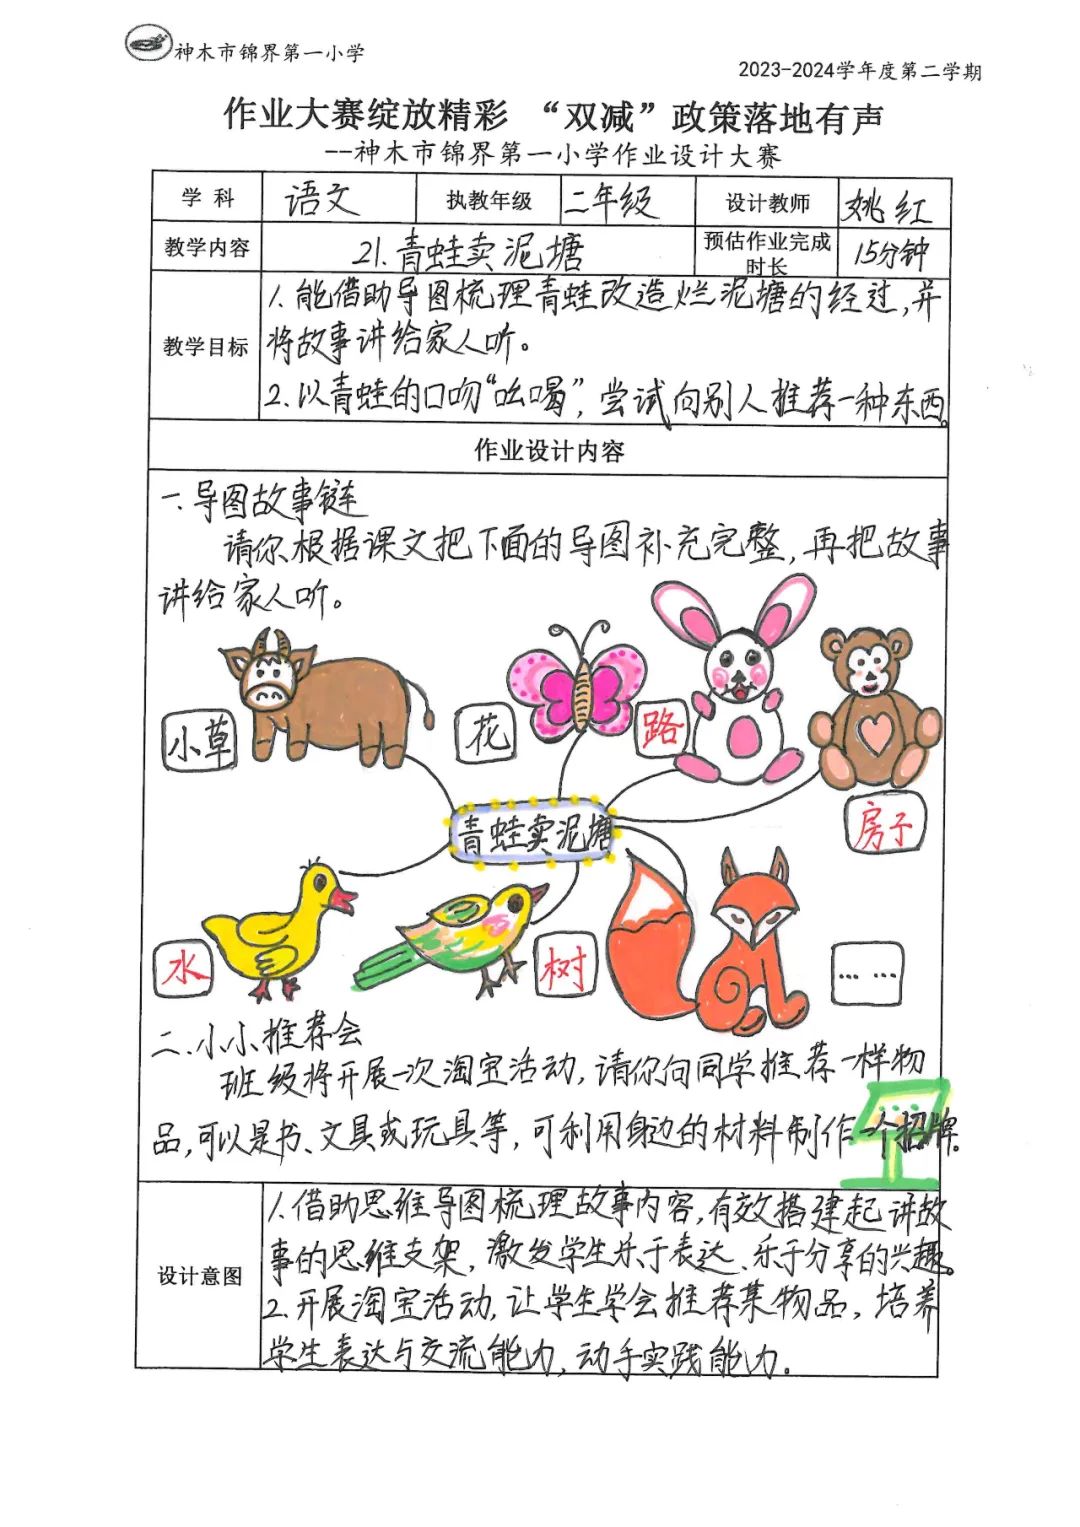 神木市锦界第一小学
2023-2024学年度第二学期
作业大赛绽放精彩 “双减”政策落地有声
--神木市锦界第一小学作业设计大赛
学 科 语文 执教年级 二年级 设计教师 姚红
教学内容 21.青蛙卖泥塘 预估作业完成时长 15分钟
教学目标
1.能借助导图梳理青蛙改造烂泥塘的经过,并
将故事讲给家人听。
2.以青蛙的口吻“吆喝”,尝试向别人推荐一种东西。
作业设计内容
一.导图故事链
请你根据课文把下面的导图补充完整,再把故事
讲给家人听。
小草
花
路
房子
青蛙卖泥塘
水
树
……
二.小小推荐会
班级将开展一次淘宝活动,请你向同学推荐一样物
品,可以是书、文具或玩具等,可利用身边的材料制作一个招牌.
设计意图
1.借助思维导图梳理故事内容,有效搭建起讲故
事的思维支架,激发学生乐于表达、乐于分享的兴趣。
2.开展淘宝活动,让学生学会推荐某物品,培养
学生表达与交流能力,动手实践能力.